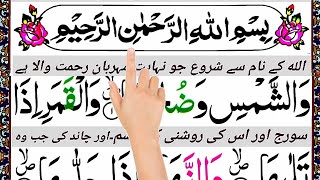 بِسْمِ اللهِ الرَّحْمٰنِ الرَّحِيْمِ
اللہ کے نام سے شروع جو نہایت مہربان رحمت والا ہے
وَالشَّمْسِ وَضُحٰىهَا وَالْقَمَرِ اِذَا
سورج اور اس کی روشنی کی قسم اور چاند کی جب وہ
تَلٰىهَا وَالنَّهَارِ اِذَا جَلّٰىهَا